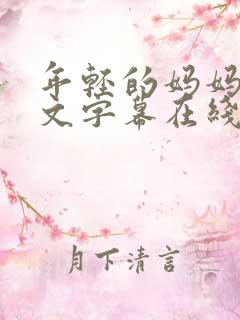 年轻的妈妈
文字幕在线
月下清言